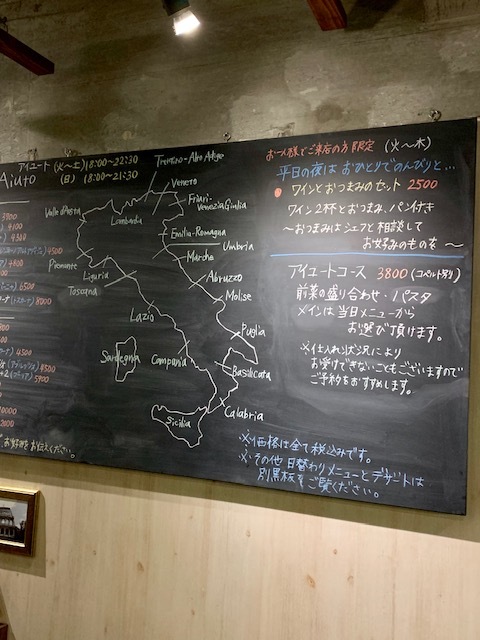 Aiuto
アイユート (火〜土) 18:00〜22:30
(日) 18:00〜21:30
3900
4100
4310
4500
4800
6500
8000
4500
5500
5900
10000
2000
お好みをお伝えください。
Trentino-Alto Adige
Veneto
Friuri-
Venezia Giulia
Valle d'Aosta
Lombardia
Emilia-Romagna
Umbria
Piemonte
Liguria
Toscana
Marche
Abruzzo
Molise
Lazio
Puglia
Sardegna
Campania
Basilicata
Sicilia
Calabria
お一人様でご来店の方限定 (火〜木)
平日の夜は おひとりでのんびりと…
ワインとおつまみのセット 2500
ワイン2杯とおつまみ、パン付き
〜おつまみはシェフと相談して
お好みのものを 〜
アイユートコース 3800 (コペルト別)
前菜の盛り合わせ・パスタ
メインは当日メニューから
お選び頂けます。
※仕入れ状況により
お受けできないこともございますので
ご予約をおすすめします。
※価格は全て税込みです。
※その他 日替わりメニューとデザートは
別黒板をご覧ください。